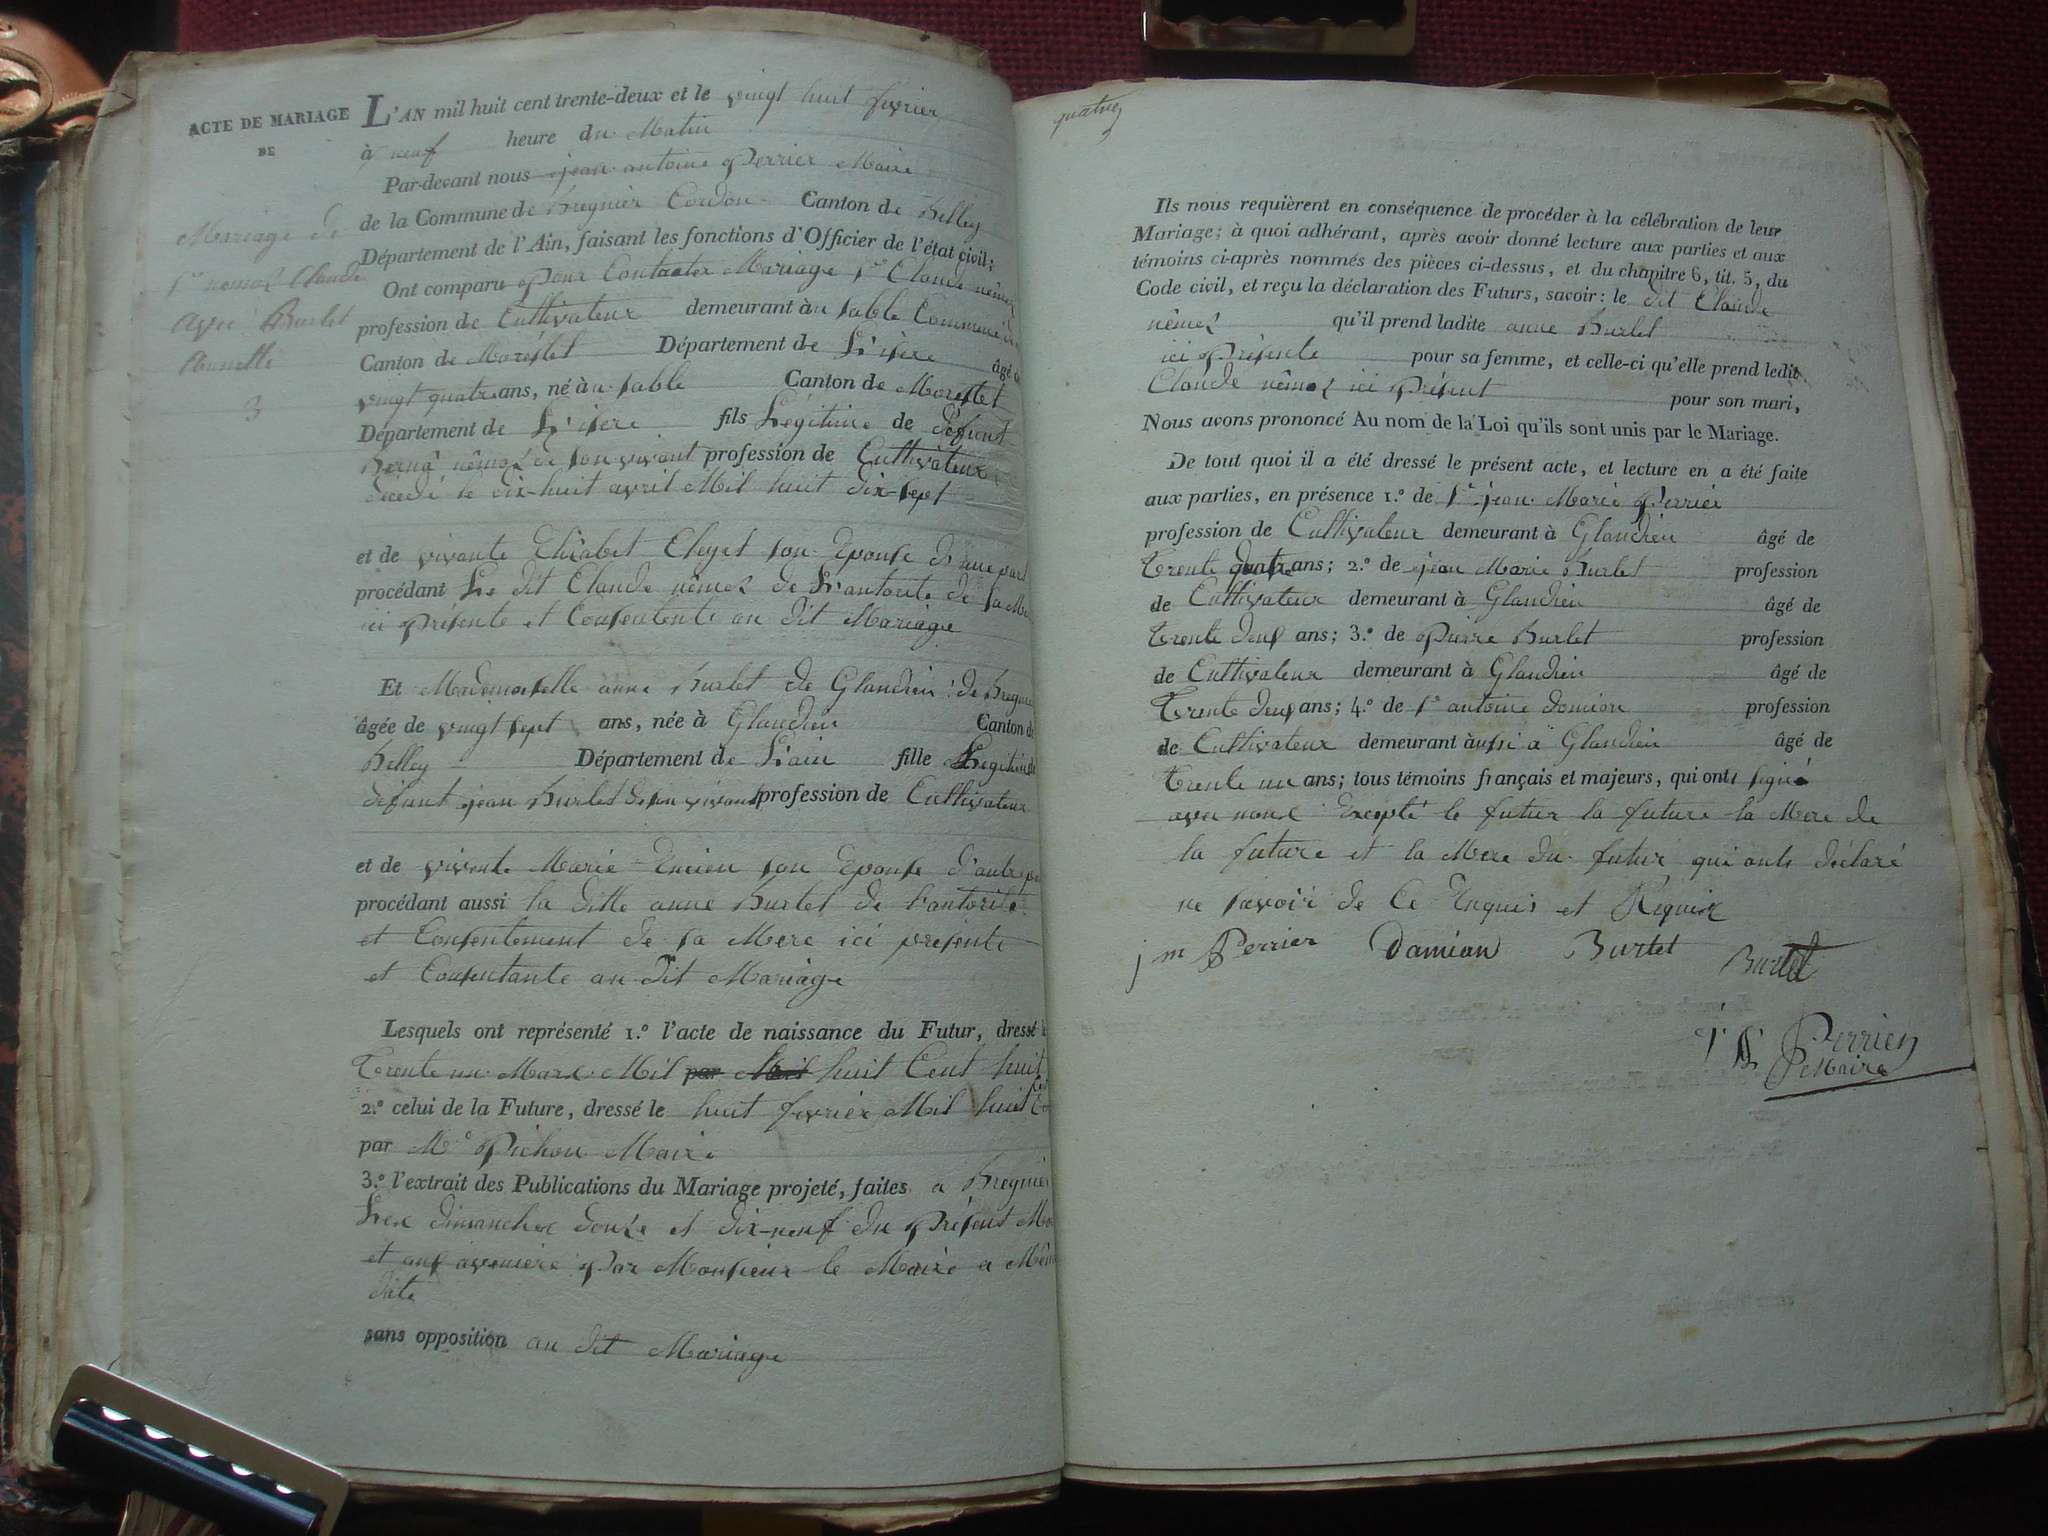 ACTE DE MARIAGE
DE
Mariage de
nemoz Claude
avec Burlet
Annette
3
L'AN mil huit cent trente-deux et le vingt huit fevrier
à neuf heure du Matin
Par-devant nous jean antoine Perrier Maire
de la Commune de Bregnier Cordon Canton de Belley
Département de l'Ain, faisant les fonctions d'Officier de l'état civil;
Ont comparu pour Contracter Mariage 1° Claude nêmoz
profession de Cultivateur demeurant à u sable Commune
Canton de Morestel Département de L'isere âgé
vingt quatre ans, né à u sable Canton de Morestel
Département de L'isere fils Légitime de défunt
nêmoz de son vivant profession de Cultivateur
décédé le dix-huit avril Mil huit dix-sept
et de vivante Elizabet Cleyet son Epouse d'une part
procédant Le dit Claude nêmoz de L'autorité de sa
ici présente et Consentente au dit Mariage
Et Mademoiselle anne Burlet de Glandieu de
âgée de vingt sept ans, née à Glandieu Canton de
Belley Département de L'ain fille Légitime
défunt jean Burlet de son vivant profession de Cultivateur
et de vivente Marie son Epouse d'autre
procédant aussi la ditte anne Burlet de l'autorité
et Consentement de sa Mere ici presente
et Consentante au dit Mariage
Lesquels ont représenté 1.° l'acte de naissance du Futur, dressé
Trente un Mars Mil par huit Cent huit
2.° celui de la Future, dressé le huit fevrier Mil huit
par Mr Pichon Maire
3.° l'extrait des Publications du Mariage projeté, faites a Bregnier
Les dimanches douze et dix-neuf du présent
et aux avenière Par Monsieur le Maire a
date
sans opposition au dit Mariage
quatre
Ils nous requièrent en conséquence de procéder à la célébration de leur
Mariage; à quoi adhérant, après avoir donné lecture aux parties et aux
témoins ci-après nommés des pièces ci-dessus, et du chapitre 6, tit. 5, du
Code civil, et reçu la déclaration des Futurs, savoir: le dit Claude
nêmoz qu'il prend ladite anne Burlet
ici Présente pour sa femme, et celle-ci qu'elle prend ledit
Claude nêmoz ici présent pour son mari,
Nous avons prononcé Au nom de la Loi qu'ils sont unis par le Mariage.
De tout quoi il a été dressé le présent acte, et lecture en a été faite
aux parties, en présence 1.° de 1° jean Marie Perrier
profession de Cultivateur demeurant à Glandieu âgé de
Trente quatre ans; 2.° de jean Marie Burlet profession
de Cultivateur demeurant à Glandieu âgé de
Trente deux ans; 3.° de Pierre Burlet profession
de Cultivateur demeurant à Glandieu âgé de
Trente deux ans; 4.° de antoine domion profession
de Cultivateur demeurant à ussi a Glandieu âgé de
Trente un ans; tous témoins français et majeurs, qui ont signé
avec nous Excepté le futur la future la Mere de
la future et la Mere du futur qui onts déclaré
ne savoir de Ce Enquis et Requis
j m Perrier Damian Burlet Burlet
Perrier
Maire